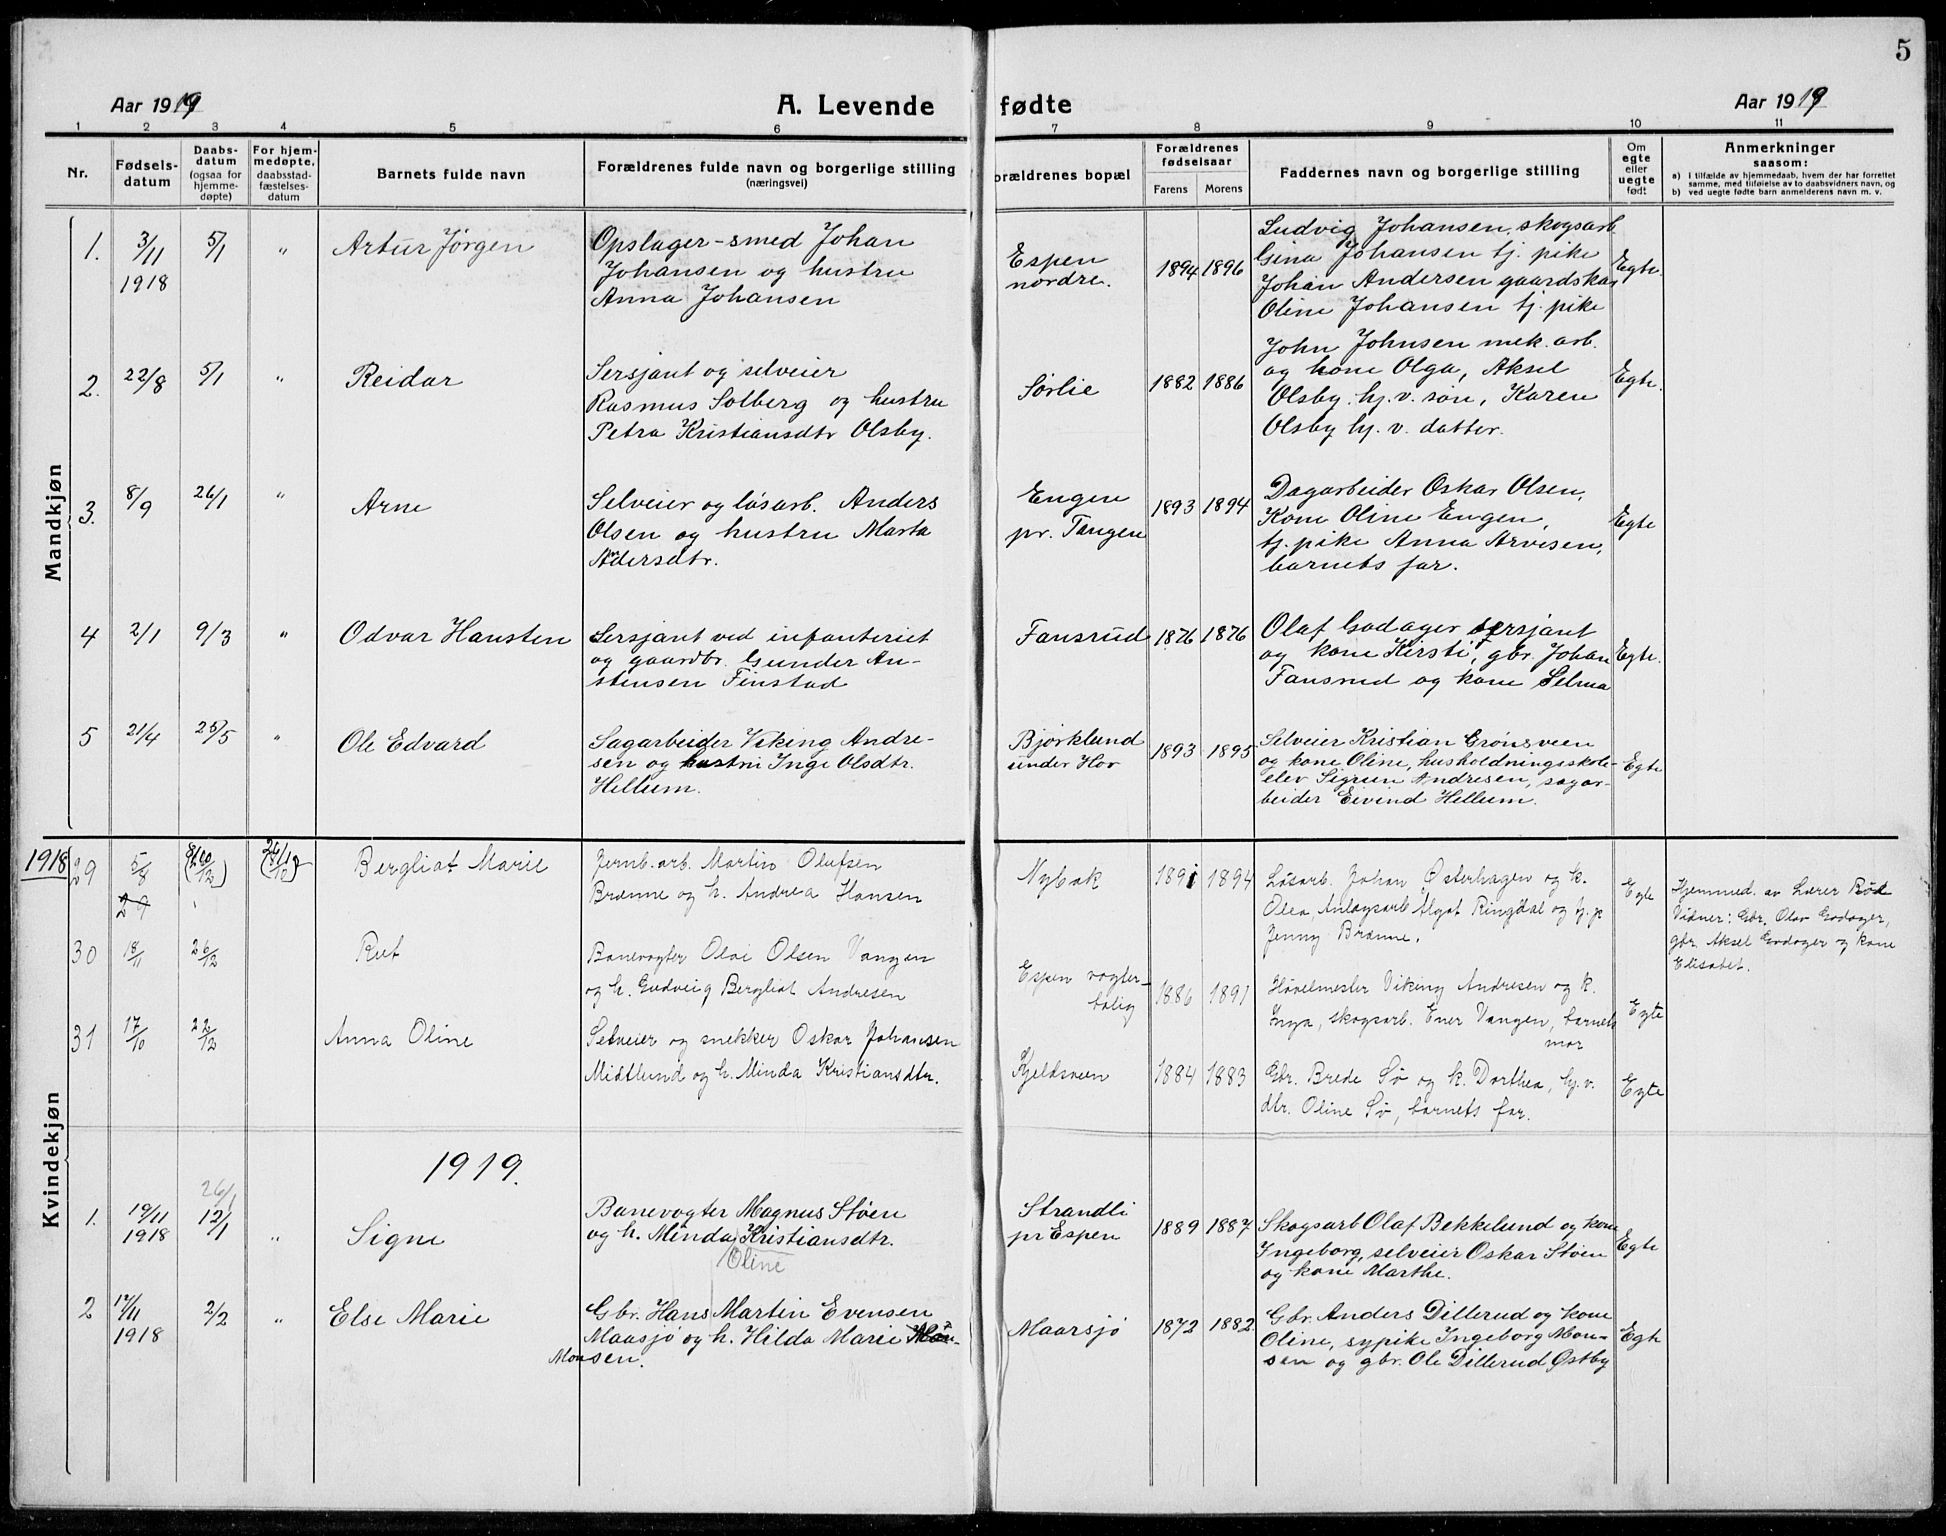 5
Aar 1919
A. Levende fødte
Aar 1919
1 2 3 4 5 6 7 8 9 10 11
Nr.
Fødsels-
datum
Daabs-
datum
(ogsaa for
hjemme-
døpte)
For hjem-
medøpte,
daabsstad-
fæstelses-
datum
Barnets fulde navn
Forældrenes fulde navn og borgerlige stilling
(næringsvei)
orældrenes bopæl
Forældrenes
fødselsaar
Farens Morens
Faddernes navn og borgerlige stilling
Om
egte
eller
uegte
født
Anmerkninger
saasom:
a) i tilfælde av hjemmedaab, hvem der har forrettet
samme, med tilføielse av to daabsvidners navn, og
b) ved uegte fødte barn anmelderens navn m. v.
Mandkjøn
1. 3/11 1918 5/1 " Artur Jørgen
Opslager-smed Johan
Johansen og hustru
Anna Johansen
Espen
nordre.
1894 1896
Ludvig Johansen, skogsarb
Gina Johansen tj. pike
Johan Andersen gaardskar
Oline Johansen tj. pike
Egte.
2. 22/8 5/1 " Reidar
Sersjant og selveier
Rasmus Solberg og hustru
Petra Kristiansdtr Olsby.
Sørlie
1882 1886
John Johnsen mek. arb.
og kone Olga, Aksel
Olsby. hj. v. søn, Karen
Olsby hj. v. datter.
Egte.
3. 8/9 26/1 " Arne
Selveier og løsarb. Anders
Olsen og hustru Marta
Adersdtr.
Engen
pr. Tangen
1893 1894
Dagarbeider Oskar Olsen,
Kone Oline Engen,
tj. pike Anna Arvesen,
barnets far.
Egte
4 2/1 9/3 " Odvar Hansten
Sersjant ved infanteriet
og gaardbr. Gunder An-
stensen Finstad
Fansrud
1876 1876
Olaf Godager sersjant
og kone Kirsti, gbr. Johan
Fansrud og kone Selma
Egte.
5 21/4 25/5 " Ole Edvard
Sagarbeider Viking Andre-
sen og hustru Inga Olsdtr.
Hellum.
Bjørklund
under Hov
1893 1895
Selveier Kristian Grønsveen
og kone Oline, husholdningsskole-
elev Sigrun Andresen, sagar-
beider Eivind Hellum.
Egte
Kvindekjøn
1918
29 5/8 Bergliot Marie
Jernb.arb. Martin Olafsen
Brænne og h. Andrea Hansen
Nybak
1891 1894
Løsarb. Johan Østerhagen og k.
Olea, Anlægsarb Algot Ringdal og tj. p
Jenny Brænne.
Egte
Hjemmed. av Lærer
Vidner: Gbr. Olav Godager,
gbr. Aksel Godager og kone
Elisabet.
30 18/11 26/12 Rut
Banevogter Olai Olsen Vangen
og h. Gudveig Bergliot Andresen
Espen vogter-
bolig
1886 1891
Høvelmester Viking Andresen og k.
Inga, skogsarb. Ener Vangen, barnets
mor
Egte
31 17/10 22/12 Anna Oline
Selveier og snekker Oskar Johansen
Midtlund og h. Minda Kristiansdtr.
Kjeldsveen
1884 1883
Gbr. Brede Sø og k. Dorthea, hj. v.
dtr. Oline Sø, barnets far.
Egte
1919.
26/1
1. 19/11 1918 12/1 " Signe
Banevogter Magnus Støen
og h. Minda Kristiansdtr.
Oline
Strandli
pr Espen
1889 1887
Skogsarb Olaf Bekkelund og kone
Ingeborg, selveier Oskar Støen
og kone Marthe.
Egte
2 17/11 1918 2/2 " Else Marie
Gbr. Hans Martin Evensen
Maasjø og h. Hilda Marie
Monsen.
Maarsjø
1872 1882.
Gbr. Anders Dillerud og kone
Oline, sypike Ingeborg Mon-
sen og gbr. Ole Dillerud Østby
Egte